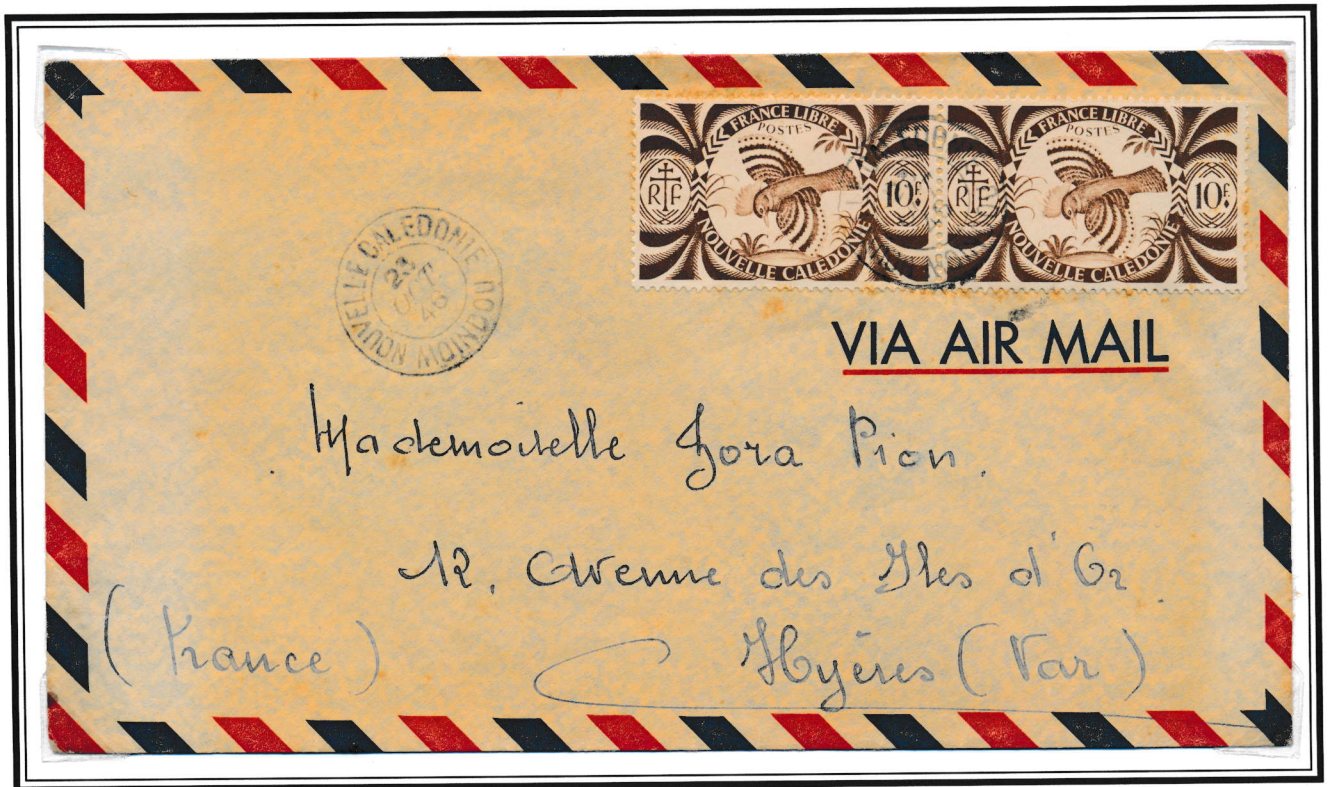 FRANCE LIBRE
POSTES
RF
10F.
NOUVELLE CALÉDONIE
FRANCE LIBRE
POSTES
RF
10F.
NOUVELLE CALÉDONIE
NOUVELLE CALEDONIE
23
OCT
46
VIA AIR MAIL
Mademoiselle Zora Pion.
12, Avenue des Iles d'Or.
Hyères (Var)
(France)